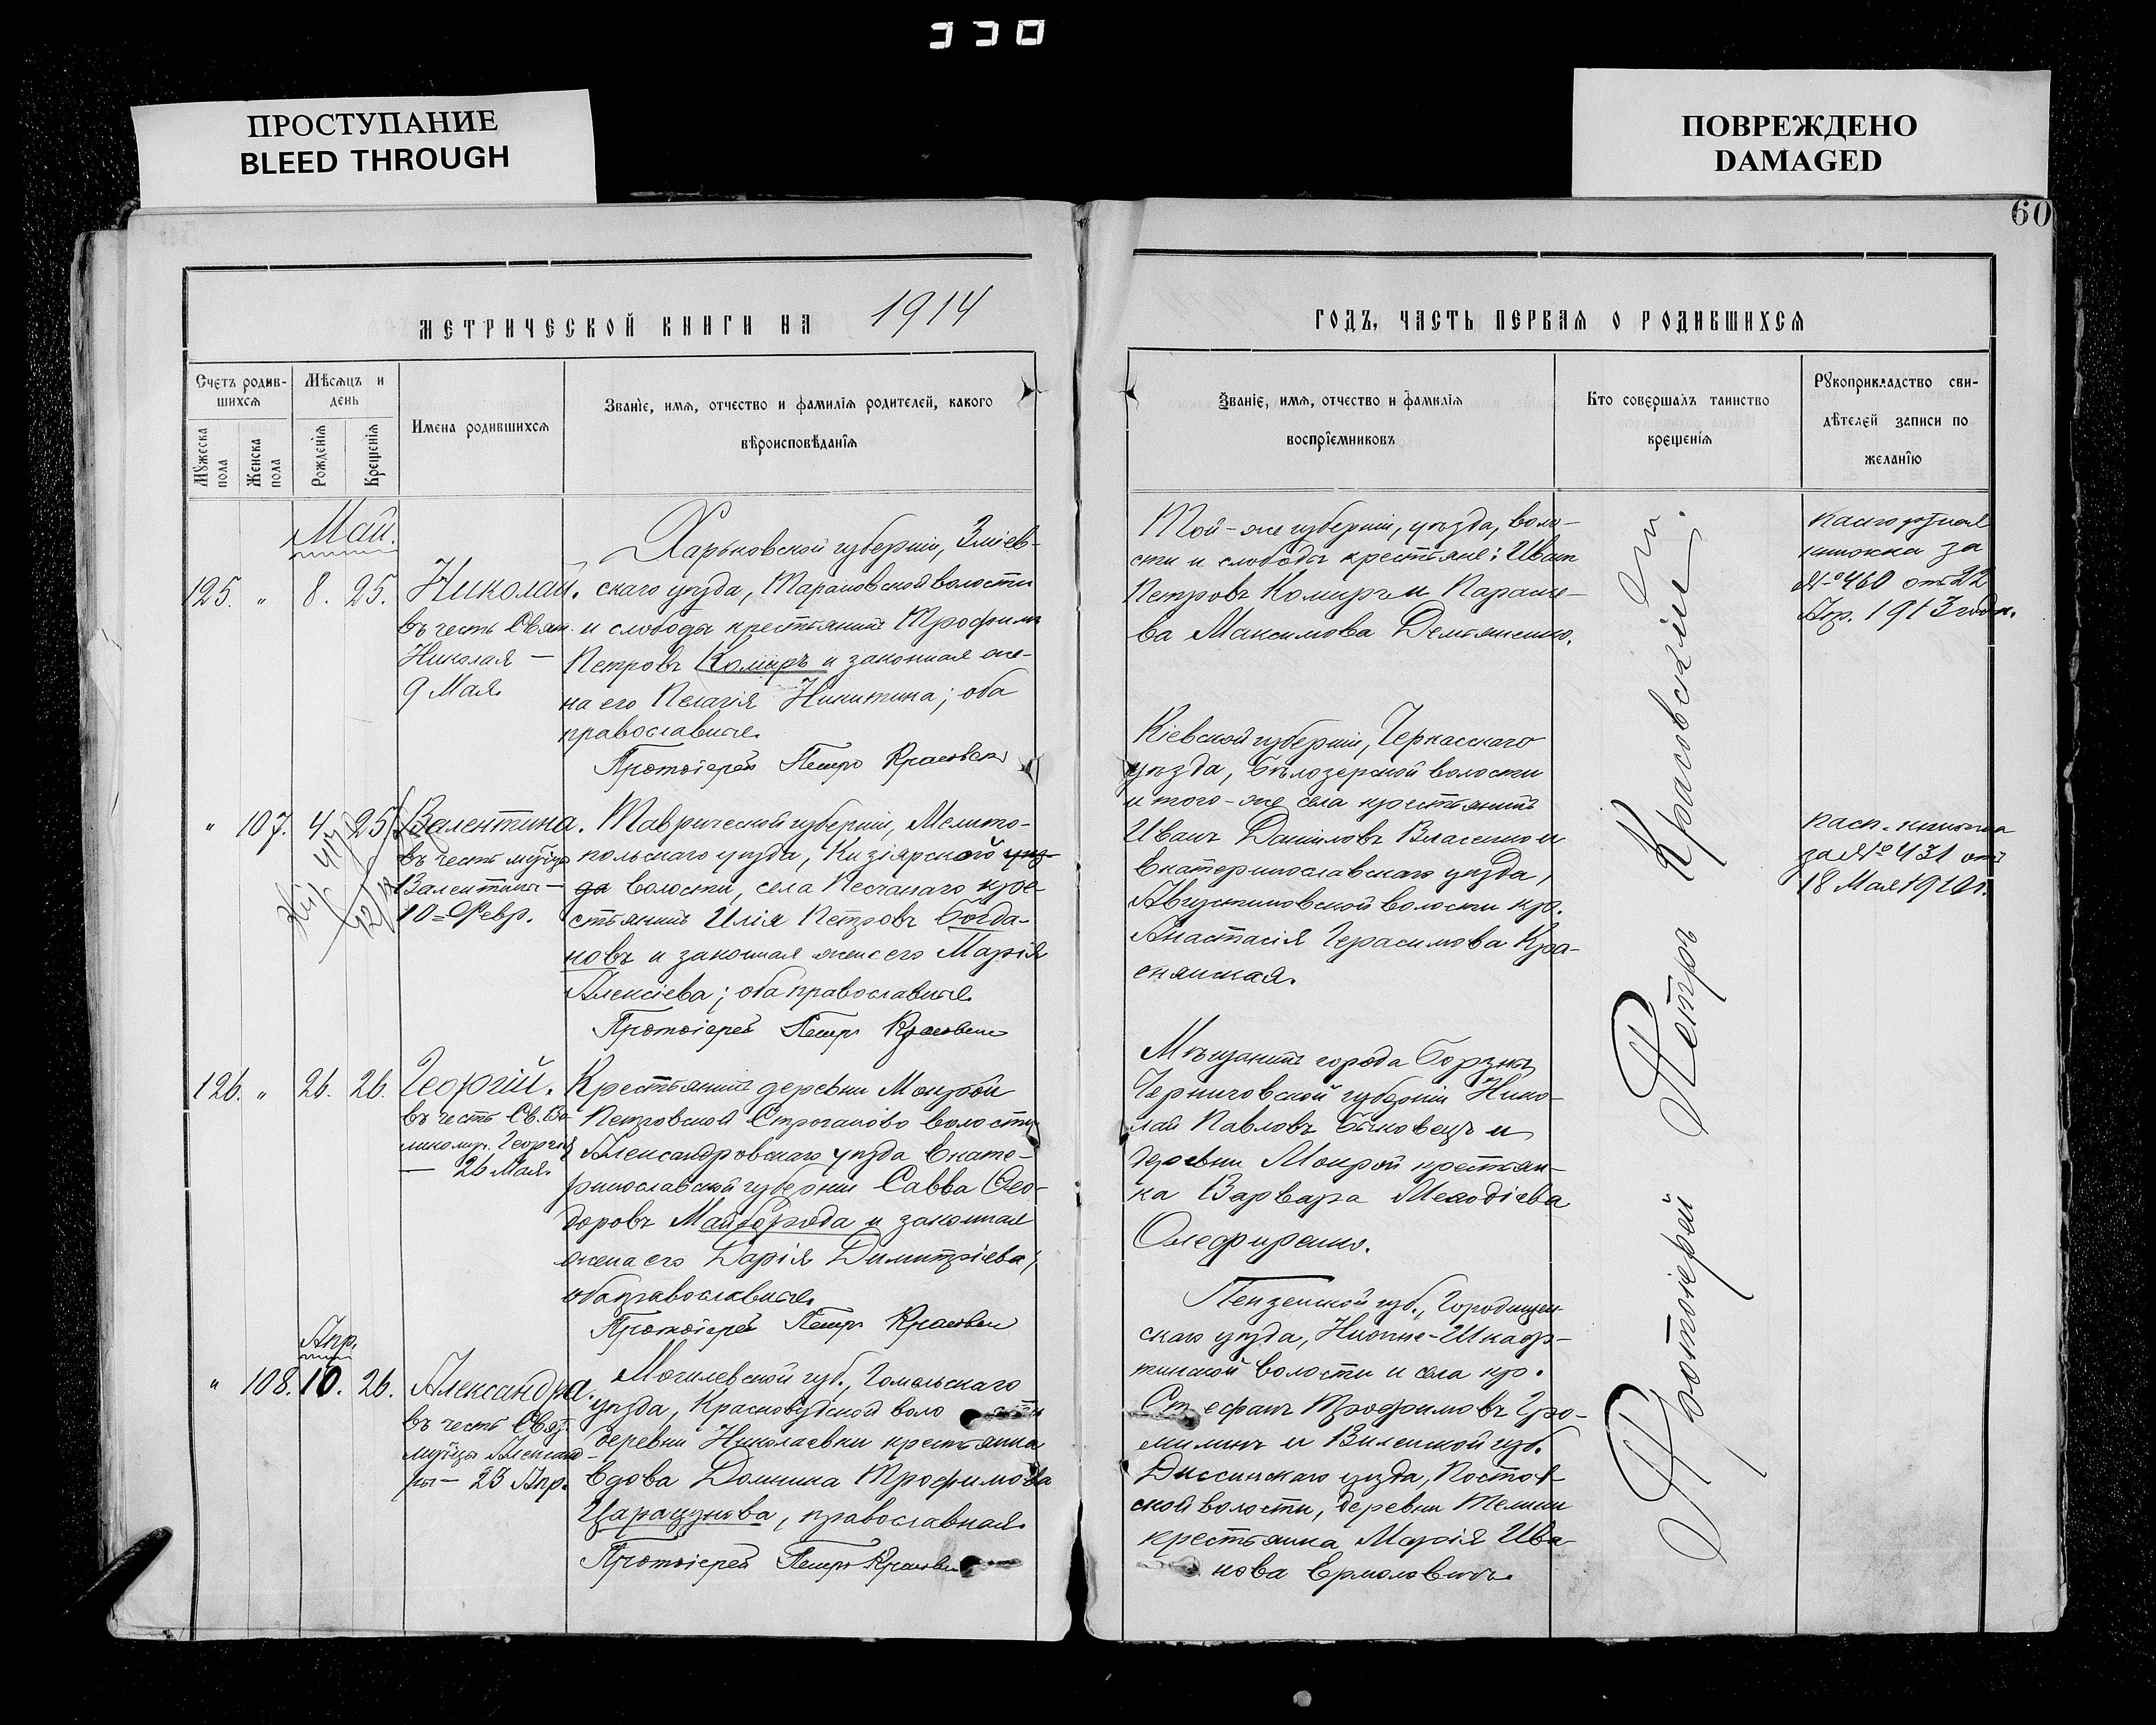 330
ПРОСТУПАНИЕ
BLEED THROUGH
ПОВРЕЖДЕНО
DAMAGED
60
МЕТРИЧЕСКОЙ КНИГИ НА 1914
ГОДЪ, ЧАСТЬ ПЕРВАЯ О РОДИВШИХСЯ
Счетъ родив-
шихся
Мѣсяцъ и
день
Мужеска
пола
Женска
пола
Рожденія
Крещенія
Имена родившихся
Званіе, имя, отчество и фамилія родителей, какого
вѣроисповѣданія
Званіе, имя, отчество и фамилія
воспріемниковъ
Кто совершалъ таинство
крещенія
Рукоприкладство сви-
дѣтелей записи по
желанію
Май.
125. " 8. 25.
Николай.
въ честь Свят.
Николая —
9 Мая.
Харьковской губерніи, Зміев-
скаго уѣзда, Тарановской волости
и слободы крестьянинъ Трофимъ
Петровъ Комиръ и законная же-
на его Пелагія Никитина; оба
православные.
Протоіерей Петръ Красовскі
Той-же губерніи, уѣзда, воло-
сти и слободы крестьяне: Иванъ
Петровъ Комиръ и Параске-
ва Максимова Демьяненко.
книжка за
№ 460 отъ 22
Апр. 1913 года.
" 107. 4. 25.
Валентина.
въ честь муч-цы
Валентины —
10 Февр.
Таврической губерніи, Мелито-
польскаго уѣзда, Кизіярской уѣз-
да волости, села Песчанаго кре-
стьянинъ Илія Петровъ Богда-
новъ и законная жена его Марія
Алексіева; оба православные.
Протоіерей Петръ Красовскі
Кіевской губерніи, Черкасскаго
уѣзда, Бѣлозерской волости
и того-же села крестьянинъ
Иванъ Даниловъ Власенко и
Екатеринославскаго уѣзда,
Августиновской волости кр.
Анастасія Герасимова Кра-
снянская.
Пасп. книжка
за № 431 отъ
18 Мая 1910 г.
126. " 26. 26.
Георгій.
въ честь Св. Ве-
ликомуч. Георгія
— 26 Мая.
Крестьянинъ деревни Мокрой
Петровской Строганово волости
Александровскаго уѣзда Екате-
ринославской губерніи Савва Ѳео-
доровъ Майборода и законная
жена его Дарія Димитріева;
оба православные.
Протоіерей Петръ Красовскі
Мѣщанинъ города Борзны
Черниговской губерніи Нико-
лай Павловъ Быковецъ и
деревни Мокрой крестьян-
ка Варвара Меѳодіева
Олефиренко.
Апр.
" 108. 10. 26.
Александра.
въ честь Свят.
муч-цы Александ-
ры — 23 Апр.
Могилевской губ., Гомельскаго
уѣзда, Краснобудской воло сти
деревни Николаевки крестьянка
вдова Домника Трофимова
Царацунова, православная.
Протоіерей Петръ Красовскі
Пензенской губ., Городищен-
скаго уѣзда, Нижне-Шкаф-
тинской волости и села кр.
Ст ефанъ Трофимовъ Гро-
милинъ и Виленской губ.
Диссинскаго уѣзда, Постав-
ской волости, деревни
крестьянка Марія Ива-
нова Ермоловичъ.
Протоіерей Петръ Красовскій.